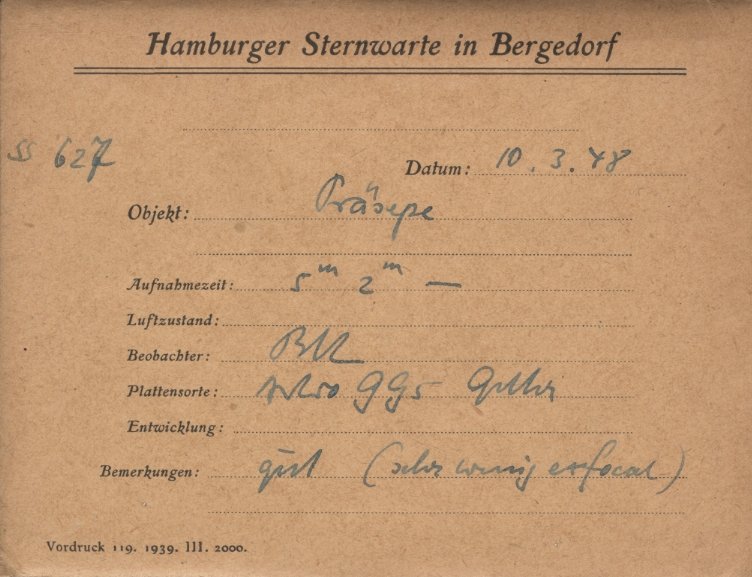 Hamburger Sternwarte in Bergedorf
SS 627
Datum: 10.3.48
Objekt: Präsepe
Aufnahmezeit: 5m 2m —
Luftzustand:
Beobachter:
Plattensorte: 995
Entwicklung:
Bemerkungen: gut (sehr wenig exfocal)
Vordruck 119. 1939. III. 2000.